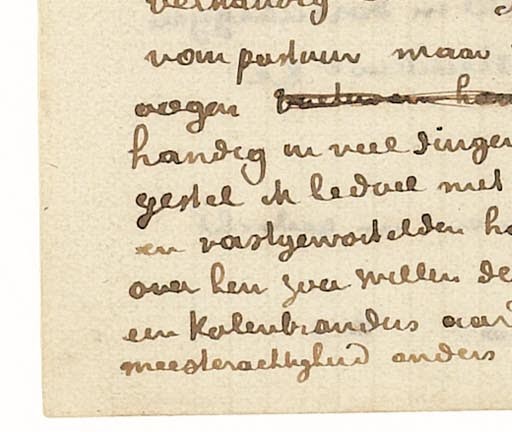 verstandig
vom postuur maar
oogen
handig in veel dingen
gestel ik bedoel met
en vastgewortelden
over hen zou willen de
een kolenbranders aard
meesterachtigheid anders